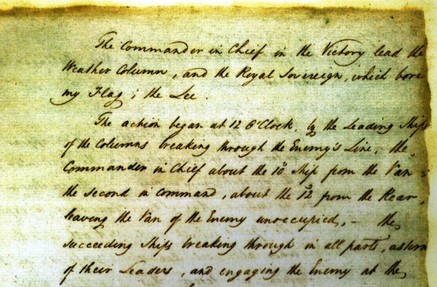 The Commander in Chief in the Victory lead the
Weather Column, and the Royal Sovereign, which bore
my Flag; the Lee.
The action began at 12 O'Clock, by the Leading Ships
of the Columns breaking through the Enemy's Line, the
Commander in Chief about the 10th Ship from the Van,
the second in command, about the 12th from the Rear,
leaving the Van of the Enemy unoccupied, – the
succeeding Ships breaking through in all parts, astern
of their Leaders, and engaging the Enemy at the